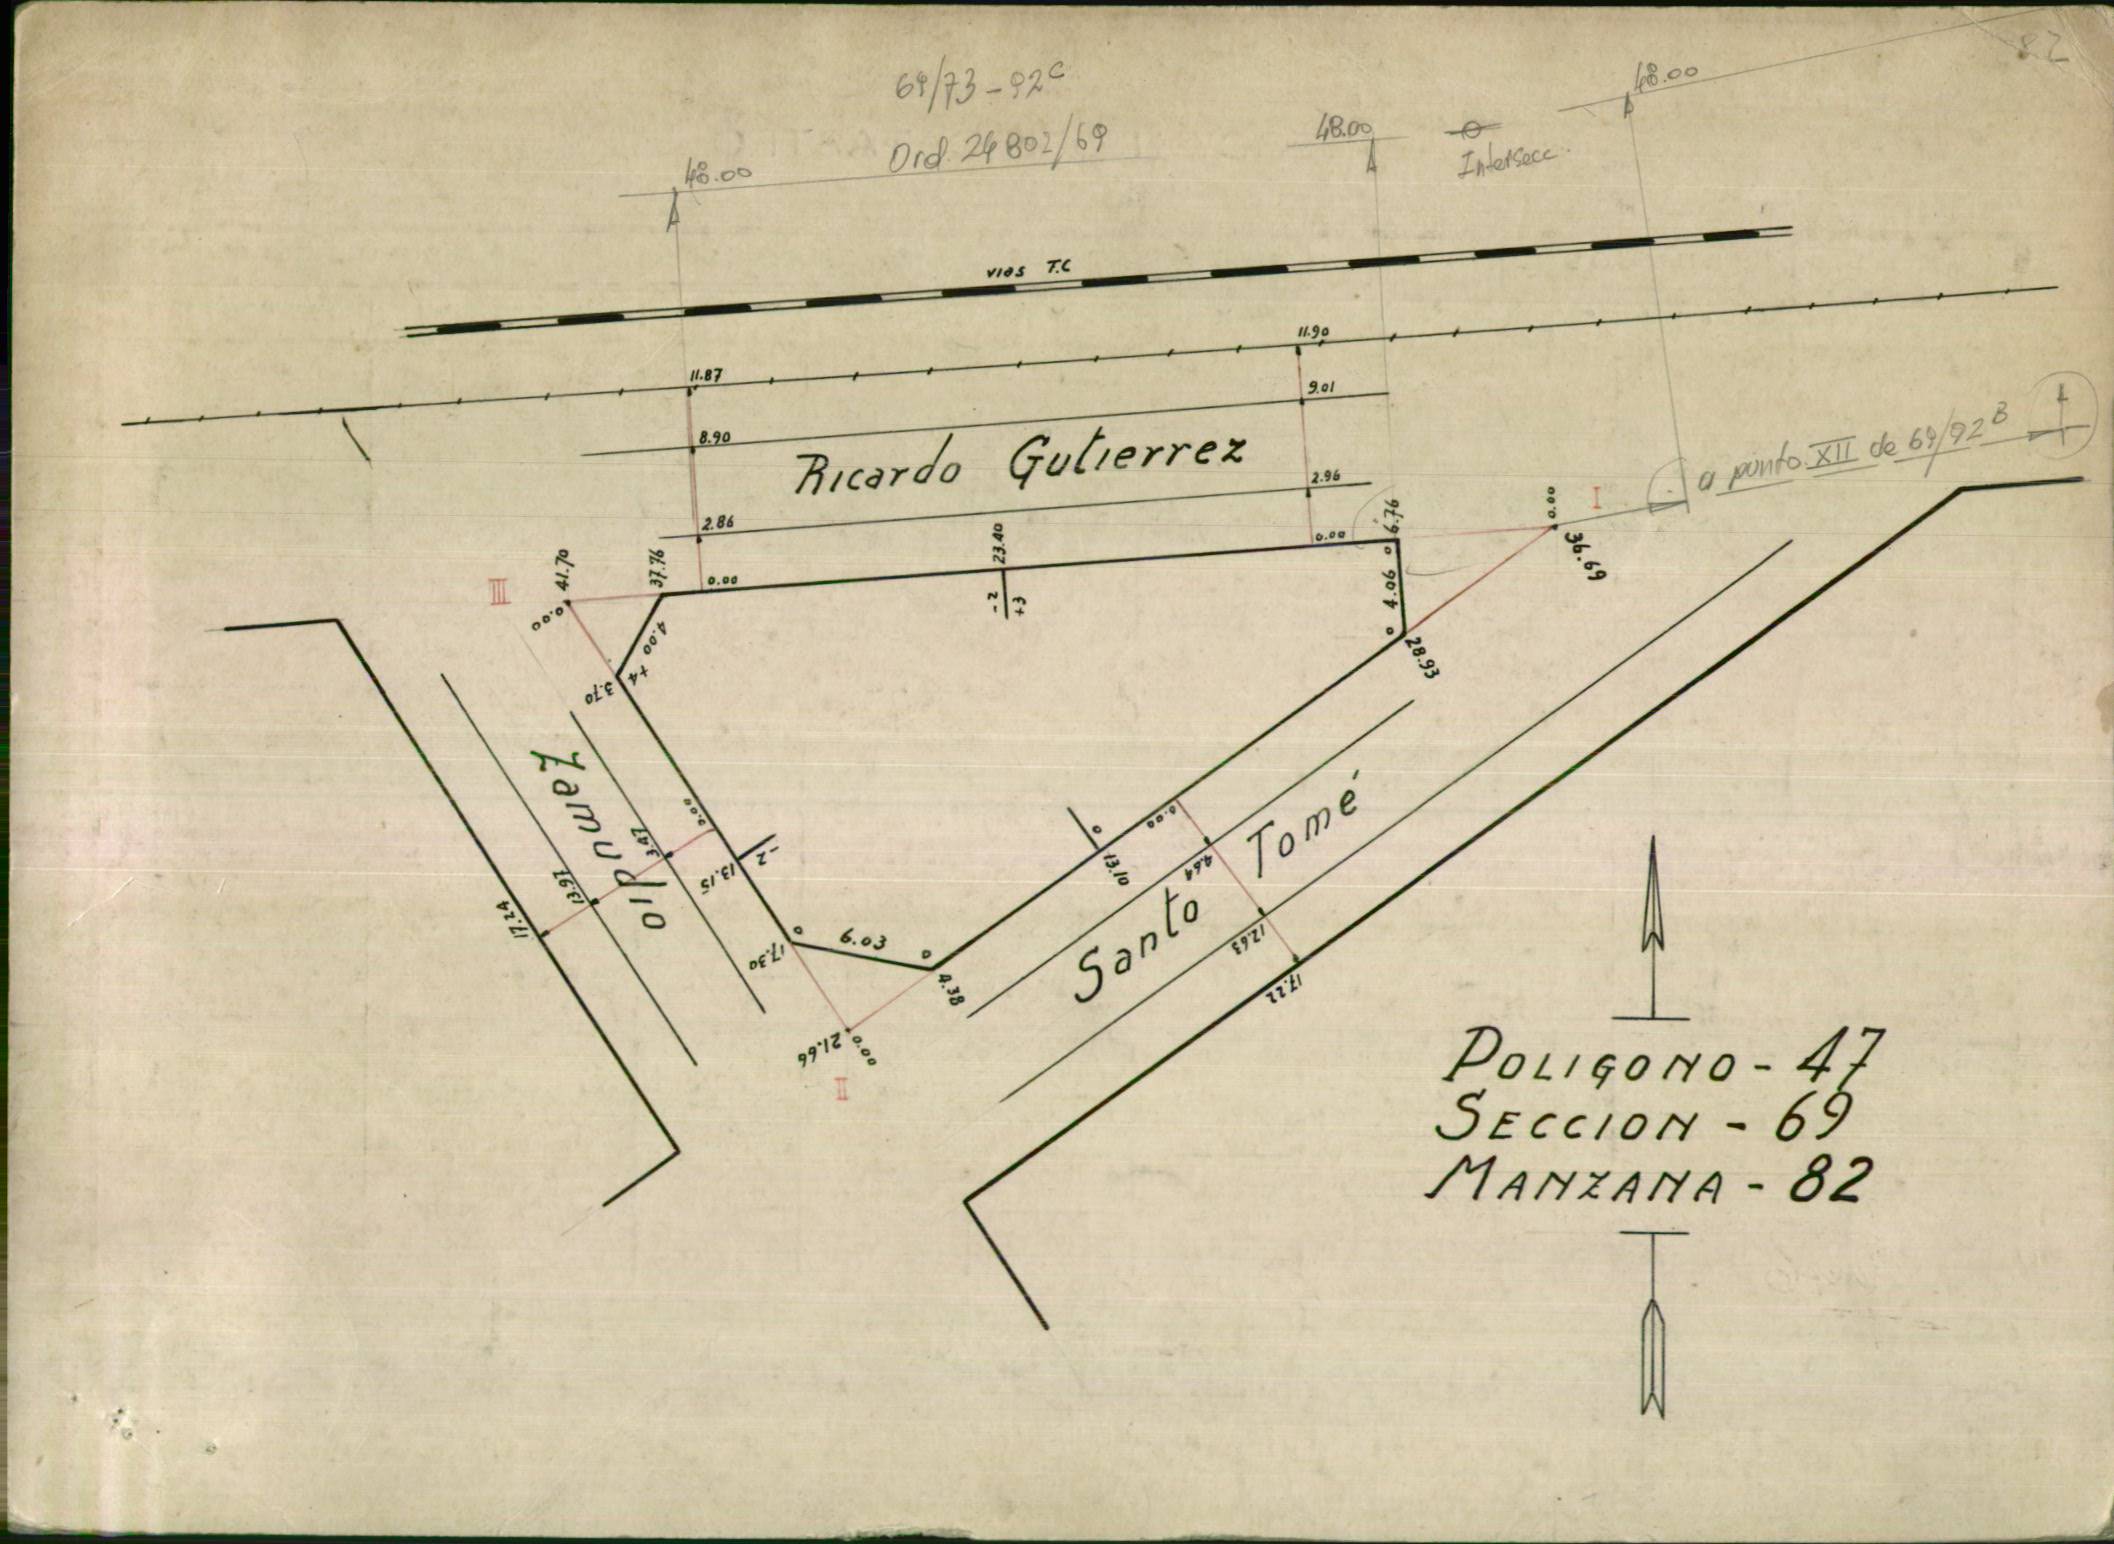 82
69/73-92c
Ord. 24802/69
48.00
48.00
48.00
Intersecc.
vias T.C
11.87
11.90
8.90
9.01
Ricardo Gutierrez
2.86
2.96
0.00
0.00
23.40
-2
+3
37.76
41.70
0.00
III
6.76
0.00
I
36.69
a punto XII de 69/92B
4.00
+4
3.70
4.06
28.93
Zamudio
0.00
3.47
13.97
17.24
13.15
-2
17.30
6.03
4.38
21.66
0.00
II
13.10
0.00
4.64
12.63
17.22
Santo Tomé
POLIGONO - 47
SECCION - 69
MANZANA - 82